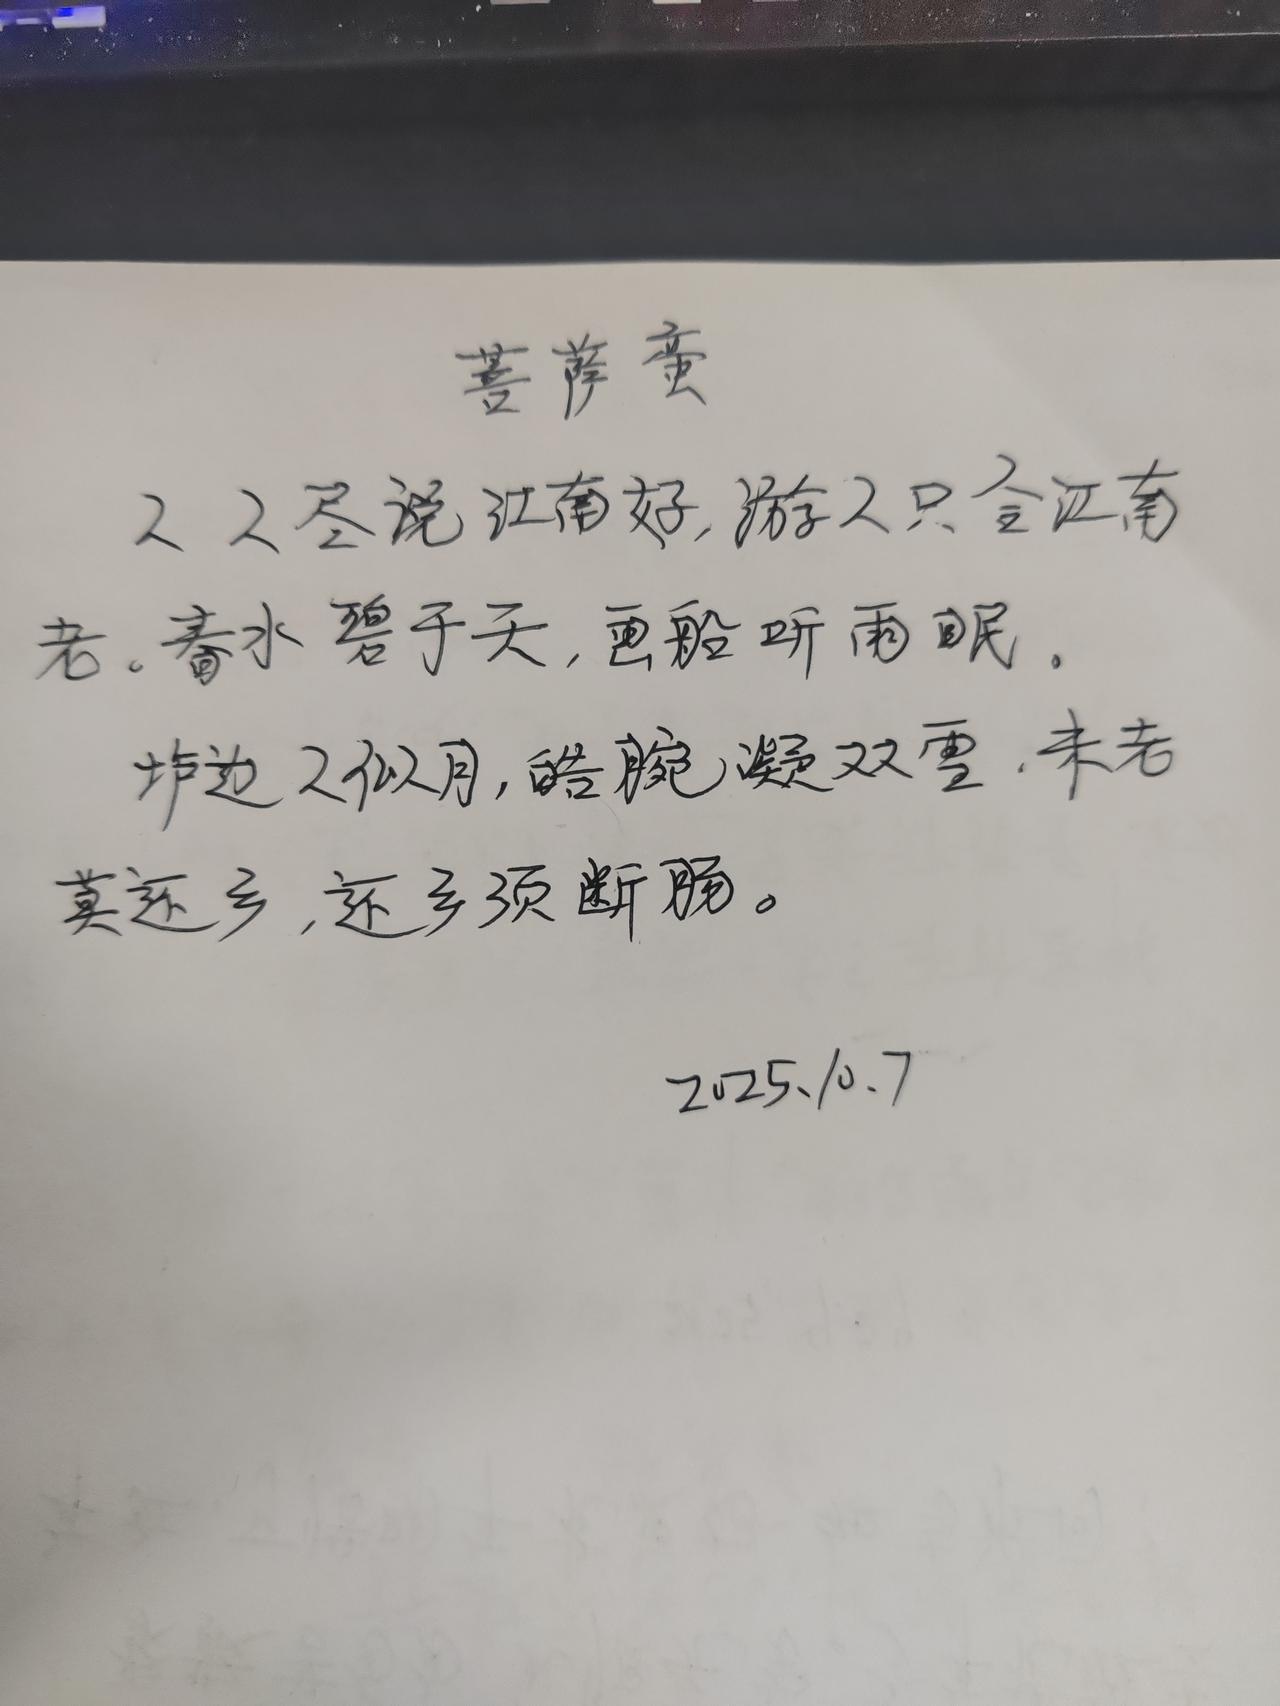 菩萨蛮
人人尽说江南好,游人只合江南
老。春水碧于天,画船听雨眠.
垆边人似月,皓腕凝双雪.未老
莫还乡,还乡须断肠。
2025.10.7